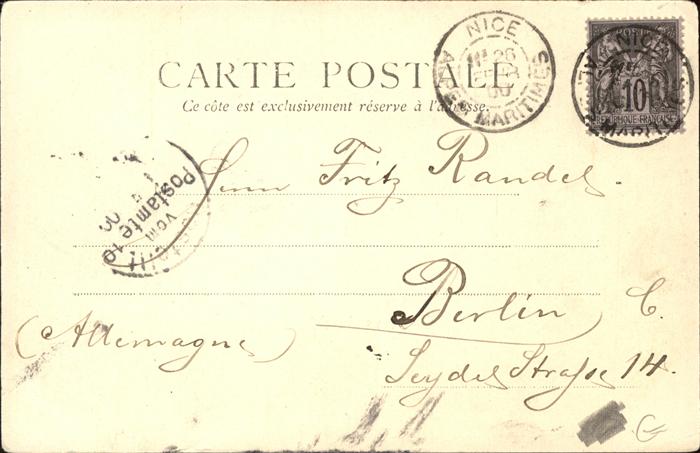 CARTE POSTALE
Ce côté est exclusivement réservé à l'adresse.
NICE
26
ALPES MARITIMES
POSTES
10
REPUBLIQUE FRANÇAISE
NICE
Postamte 19
vom
Herrn Fritz Randel.
Berlin C.
(Allemagne)
Seydel Straße 14.